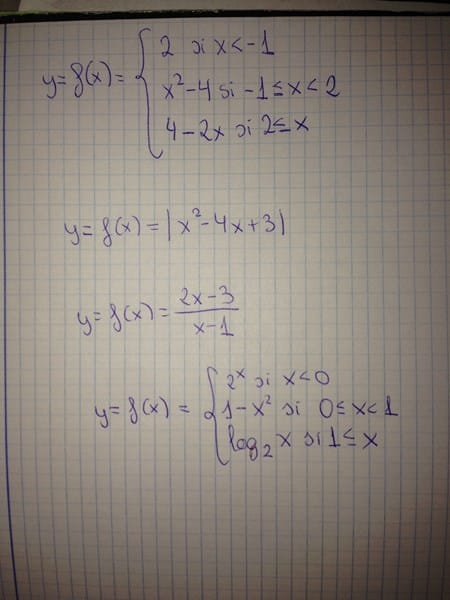 2 si x < -1
y = f(x) = { x² - 4 si -1 ≤ x < 2
4 - 2x si 2 ≤ x
y = f(x) = |x² - 4x + 3|
y = f(x) = (2x - 3)/(x - 1)
2ˣ si x < 0
y = f(x) = { 1 - x² si 0 ≤ x < 1
log₂ x si 1 ≤ x